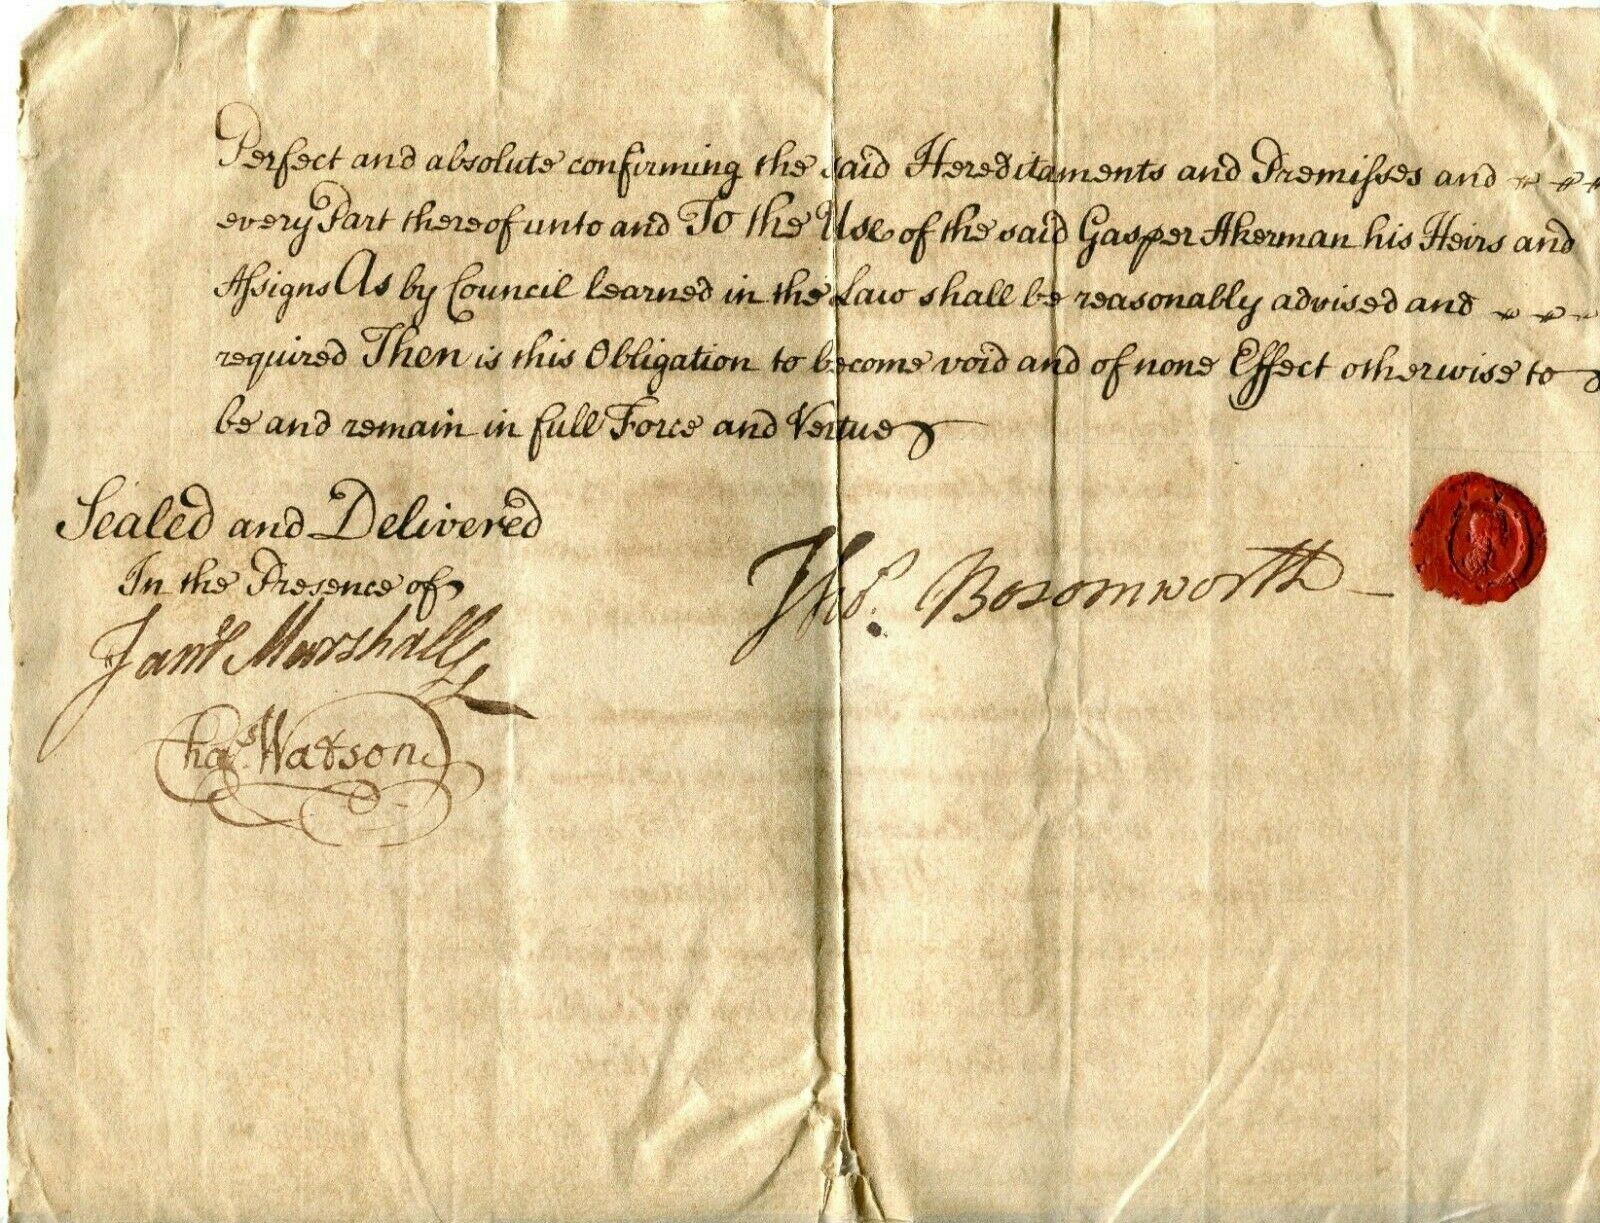 Perfect and absolute confirming the said Hereditaments and Premisses and
every Part thereof unto and To the Use of the said Gasper Akerman his Heirs and
Assigns As by Council learned in the Law shall be reasonably advised and
required Then is this Obligation to become void and of none Effect otherwise to
be and remain in full Force and Vertue
Sealed and Delivered
In the Presence of
Marshall
Chas. Watson
Thos. Bosomworth